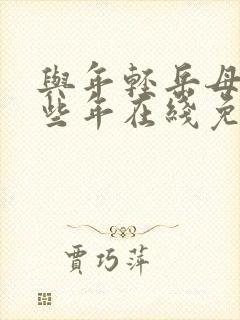 與年輕岳母
些年在綫免
賈巧萍